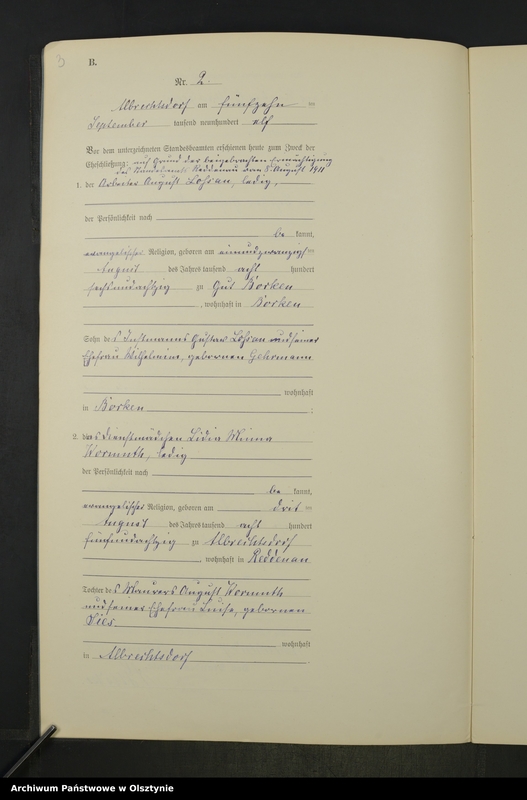 3
B.
Nr. 2.
Albrechtsdorf am fünfzehn ten
September tausend neunhundert elf
Vor dem unterzeichneten Standesbeamten erschienen heute zum Zweck der
Eheschließung: auf Grund der beigebrachten Ermächtigung
des Standesamts Reddenau vom 8. August 1911
1. der Arbeiter August Lohrau, ledig,
der Persönlichkeit nach
be kannt,
evangelischer Religion, geboren am einundzwanzigsten
August des Jahres tausend acht hundert
sechsundachtzig zu Gut Borken
, wohnhaft in Borken
Sohn des Instmanns Gustav Lohrau und seiner
Ehefrau Wilhelmine, geborenen Gehrmann
wohnhaft
in Borken ;
2. das Dienstmädchen Lidia Minna
Wormuth, ledig
der Persönlichkeit nach
be kannt,
evangelischer Religion, geboren am drit ten
August des Jahres tausend acht hundert
fünfundachtzig zu Albrechtsdorf
, wohnhaft in Reddenau
Tochter des Maurers August Wormuth
und seiner Ehefrau Luise, geborenen
wohnhaft
in Albrechtsdorf .
Archiwum Państwowe w Olsztynie